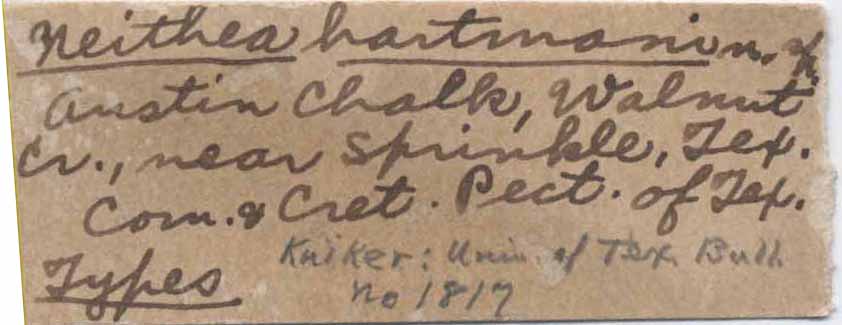 Neithea hartmanin n. sp.
Austin Chalk, Walnut
Cr., near Sprinkle, Tex.
Com. & Cret. Pect. of Tex.
Kniker: Univ. of Tex. Bull.
Types
No 1817